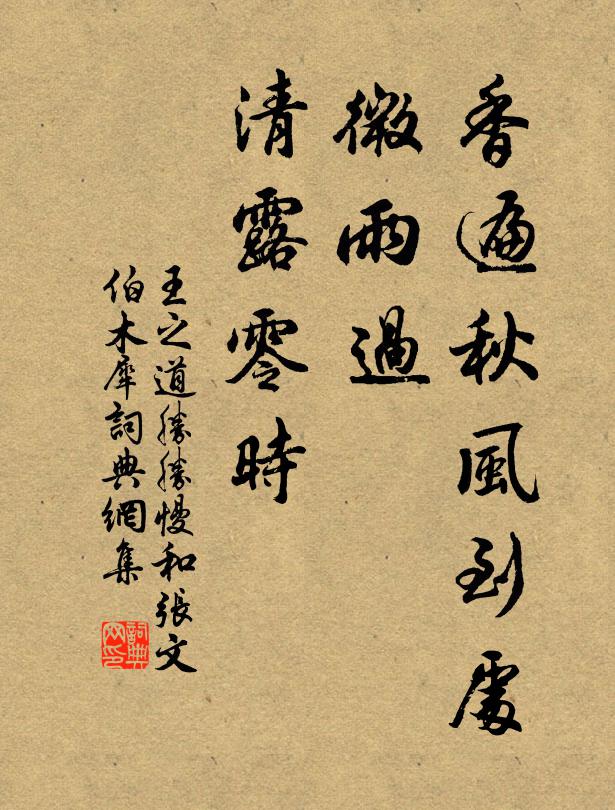 香遍秋風到處
微雨過
清露零時
王之道勝勝慢和張文
伯木犀詞典網集
詞典
网印